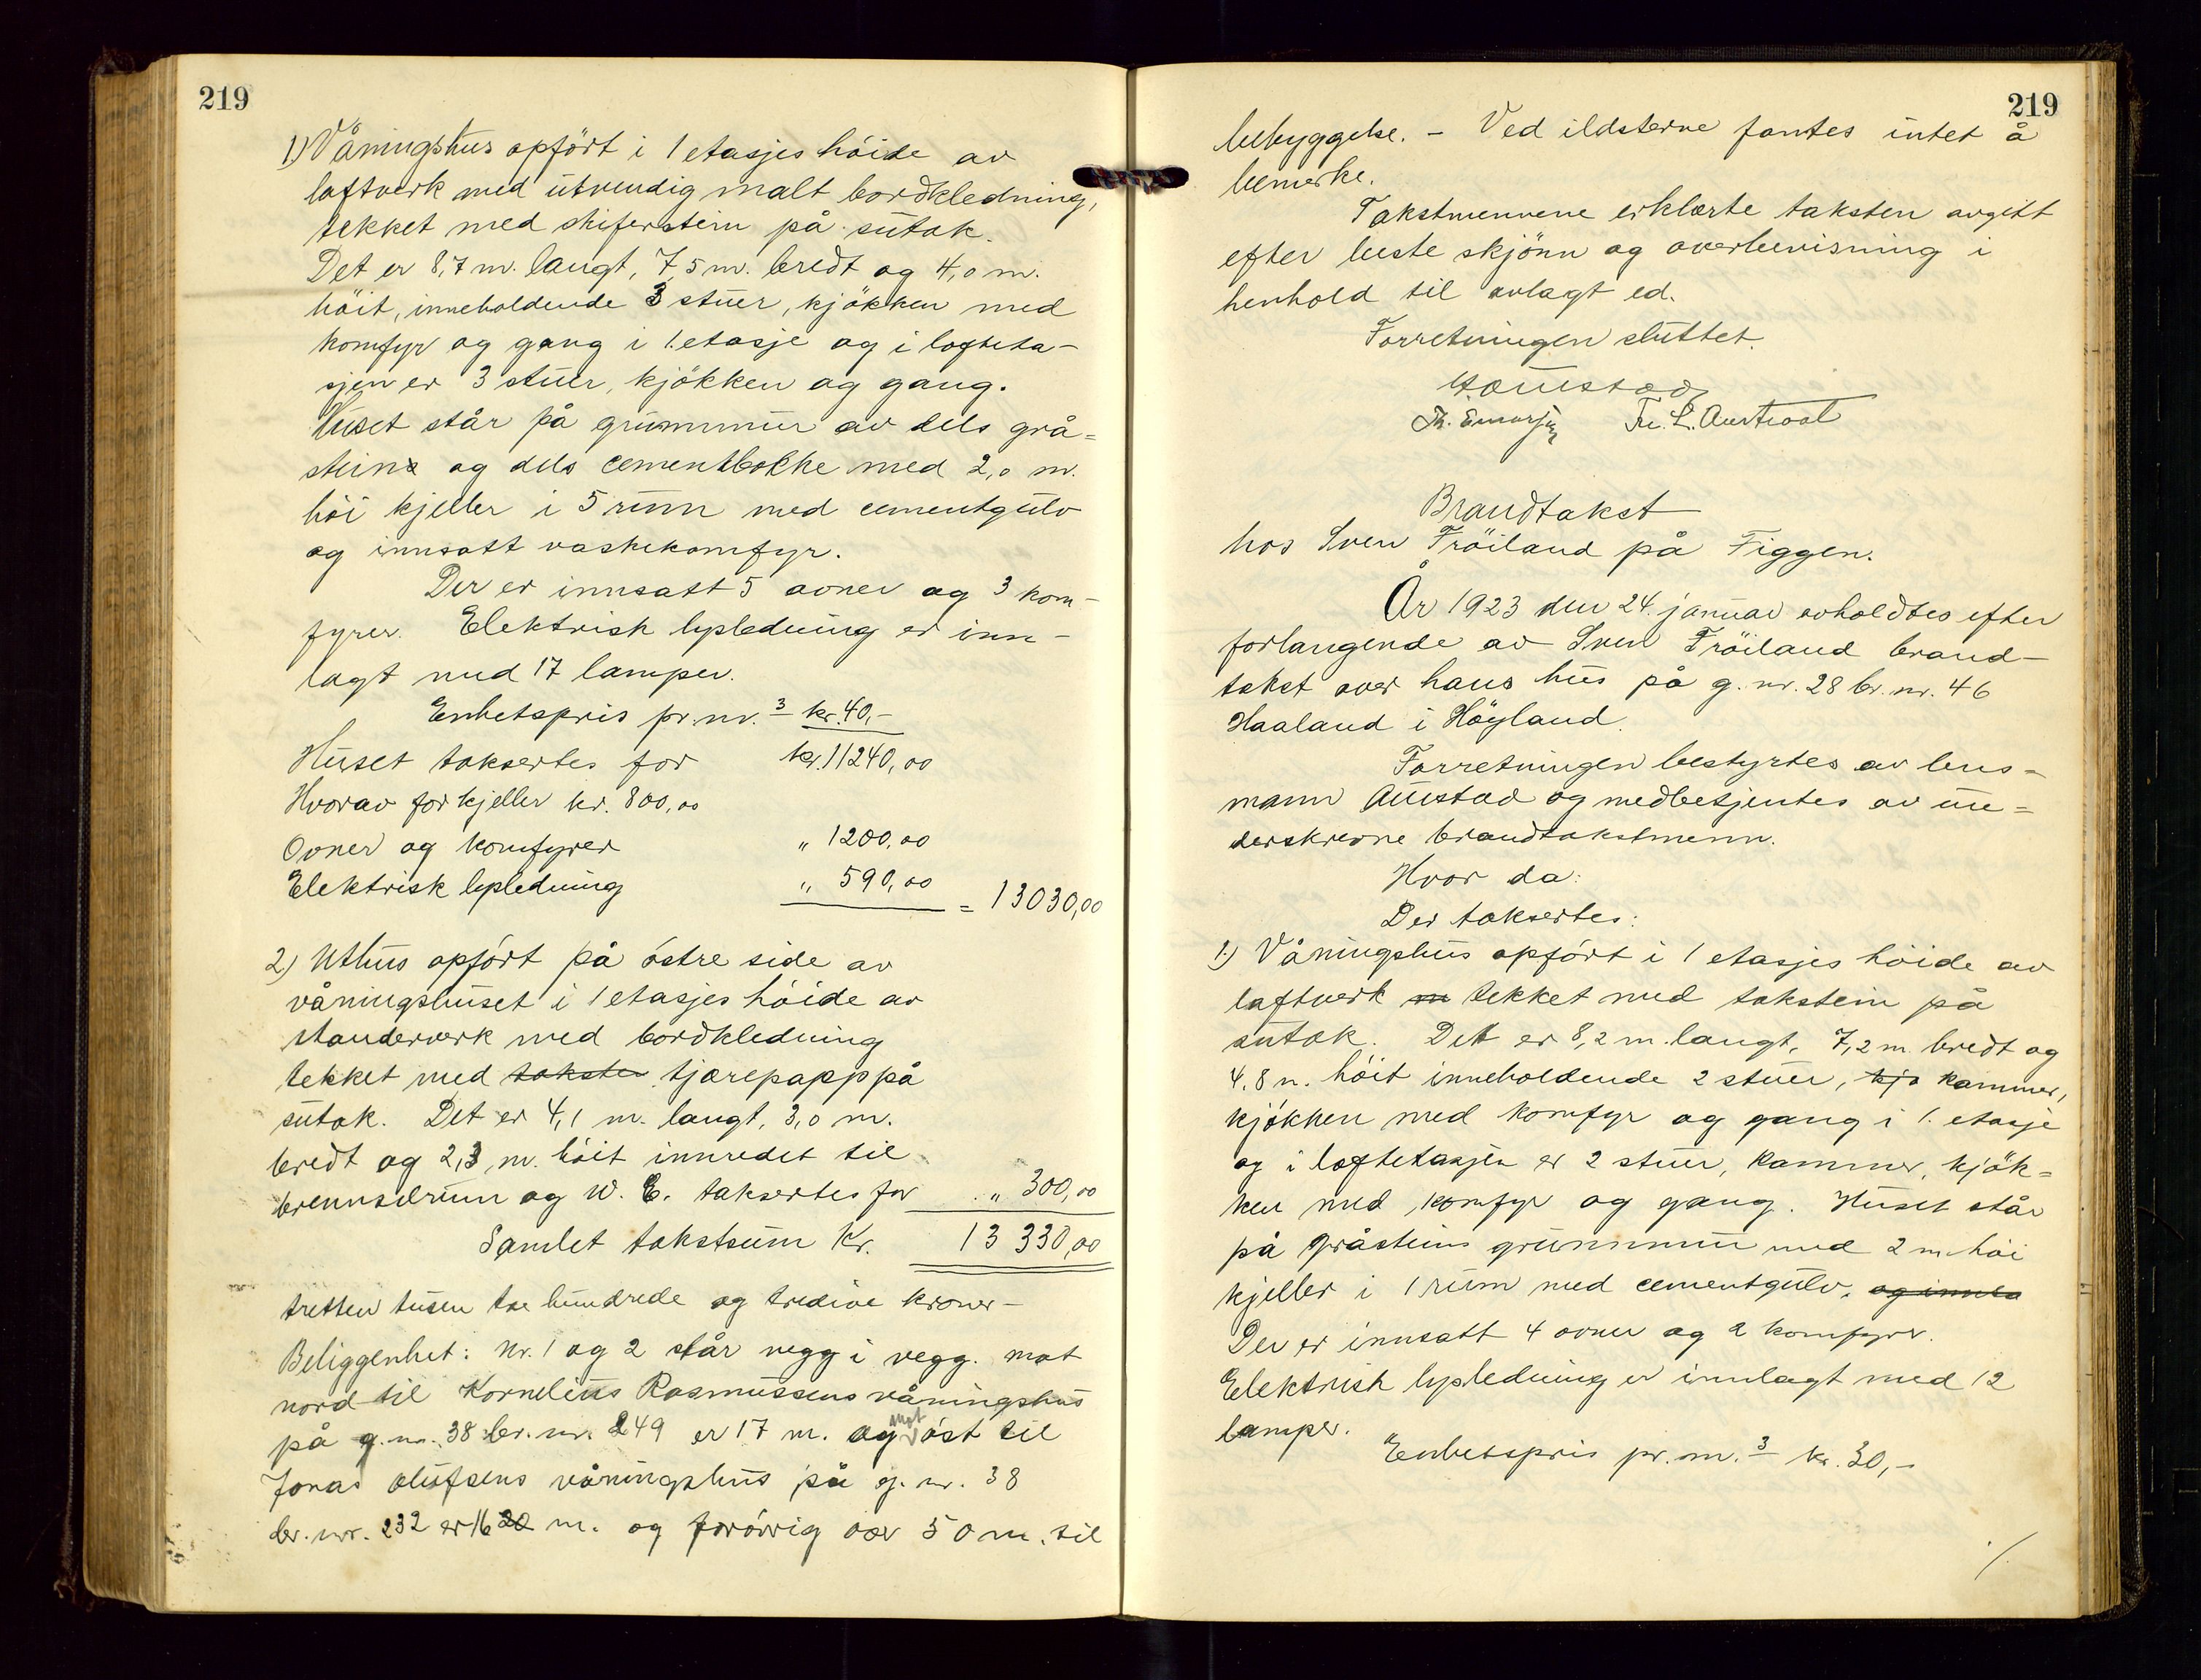 219
1) Våningshus opfört i 1 etasjes höide av
laftverk med utvendig malt bordkledning,
tekket med skiferstein på sutak.
Det er 8,7 m. langt, 7,5 m. bredt og 4,0 m.
höit, inneholdende 3 stuer, kjökken med
komfyr og gang i 1. etasje og i lofteta-
sjen er 3 stuer, kjökken og gang.
Huset står på grunnmur av dels grå=
stein og dels cementblokke med 2,0 m.
höi kjeller i 5 rum med cementgulv
og innsatt vaskekomfyr.
Der er innsatt 5 ovner og 3 kom-
fyrer. Elektrisk lysledning er inn-
lagt med 17 lamper.
Enhetspris pr. m. 3 kr. 40,-
Huset taksertes for kr. 11240,00
Hvorav for kjeller kr. 800,00
Ovner og komfyrer " 1200,00
Elektrisk lysledning " 590,00 = 13030,00
2) Uthus opfört på östre side av
våningshuset i 1 etasjes höide av
standerverk med bordkledning
tekket med taksten tjærepapp på
sutak. Det er 4,1 m. langt, 3,0 m.
bredt og 2,3 m. höit innredet til
brenselrum og W. C. taksertes for " 300,00
Samlet takstsum Kr. 13 330,00
tretten tusen tre hundrede og tredive kroner-
Beliggenhet: Nr. 1 og 2 står vegg i vegg. mot
nord til Kornelius Rasmussens våningshus
på g. nr. 38 br. nr. 249 er 17 m. og mot öst til
Jonas Olufsens våningshus på g. nr. 38
br. nr. 232 er 16 20 m. og forövrig over 50 m. til
219
bebyggelse. - Ved ildsterne fantes intet å
bemerke.
Takstmennene erklærte taksten avgitt
efter beste skjönn og overbevisning i
henhold til avlagt ed.
Forretningen sluttet.
Aaustad
Brandtakst
hos Sven Fröiland på Figgen.
År 1923 den 24. januar avholdtes efter
forlangende av Sven Fröiland brand-
takst over hans hus på g. nr. 28 br. nr. 46
Haaland i Höyland.
Forretningen bestyrtes av lens=
mann Austad og medbetjentes av un=
derskrevne brandtakstmenn.
Hvor da:
Der taksertes:
1.) Våningshus opfört i 1 etasjes höide av
laftverk m tekket med takstein på
sutak. Det er 8,2 m. langt, 7,2 m. bredt og
4,8 m. höit inneholdende 2 stuer, kjö kammer,
kjökken med komfyr og gang i 1. etasje
og i loftetasjen er 2 stuer, kammer, kjök=
ken med komfyr og gang. Huset står
på gråsteins grunnmur med 2 m höi
kjeller i 1 rum med cementgulv. og innsa
Der er innsatt 4 ovner og 2 komfyrer.
Elektrisk lysledning er innlagt med 12
lamper.
Enhetspris pr. m. 3 kr. 30,-
./